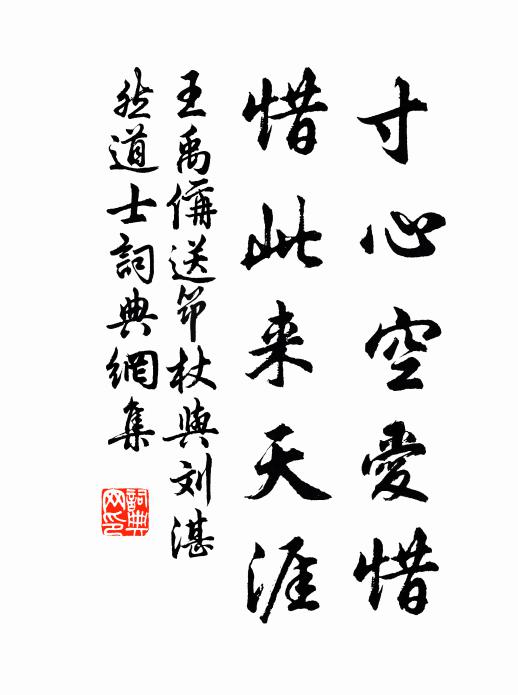 寸心空愛惜
惜此来天涯
王禹偁送筇杖與刘湛
然道士詞典網集
詞典
网印